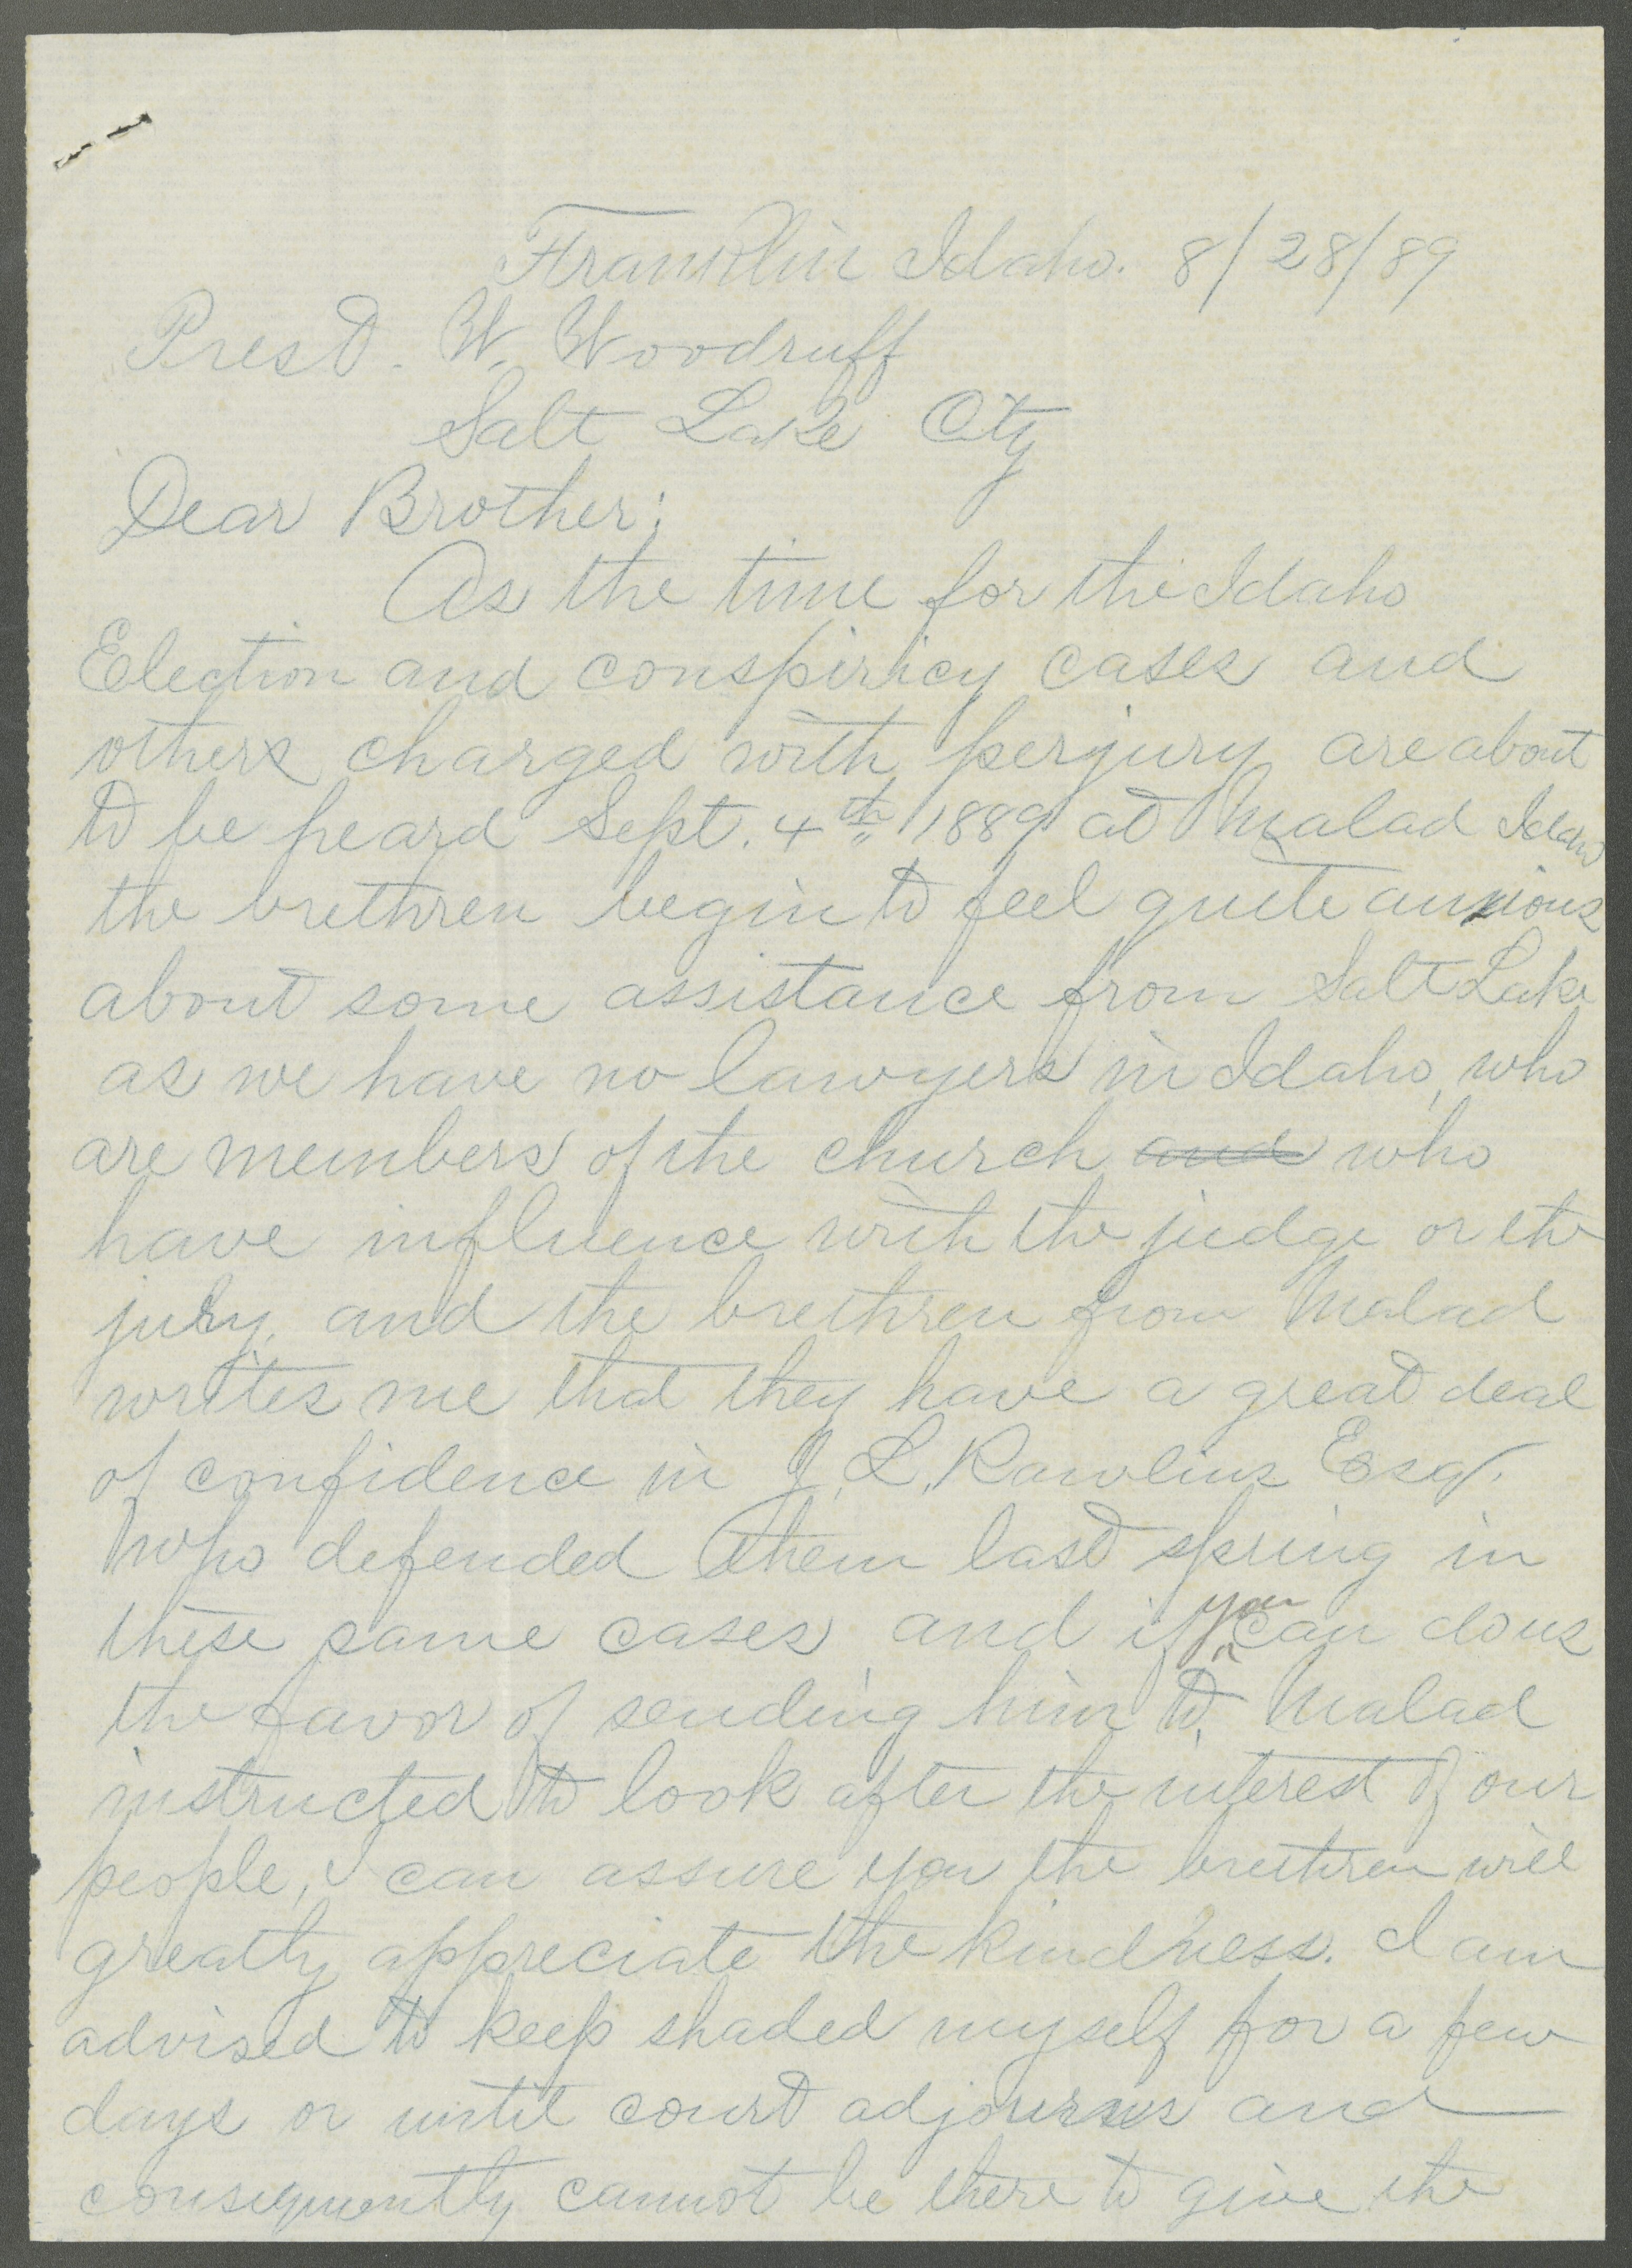 Franklin Idaho. 8/28/89
Prest. W. Woodruff
Salt Lake City
Dear Brother;
As the time for the Idaho
Election and conspiricy cases and
others charged with perjury are about
to be heard Sept. 4th 1889 at Malad Idaho
the brethren begin to feel quite anxious
about some assistance from Salt Lake
as we have no lawyers in Idaho, who
are members of the church and who
have influence with the judge or the
jury, and the brethren from Malad
writes me that they have a great deal
of confidence in J. L. Rawlins Esq.
who defended them last spring in
these same cases and if you can do us
the favor of sending him to Malad
instructed to look after the interest of our
people, I can assure you the brethren will
greatly appreciate the kindness. I am
advised to keep shaded myself for a few
days or until court adjourns and
consequently cannot be there to give the